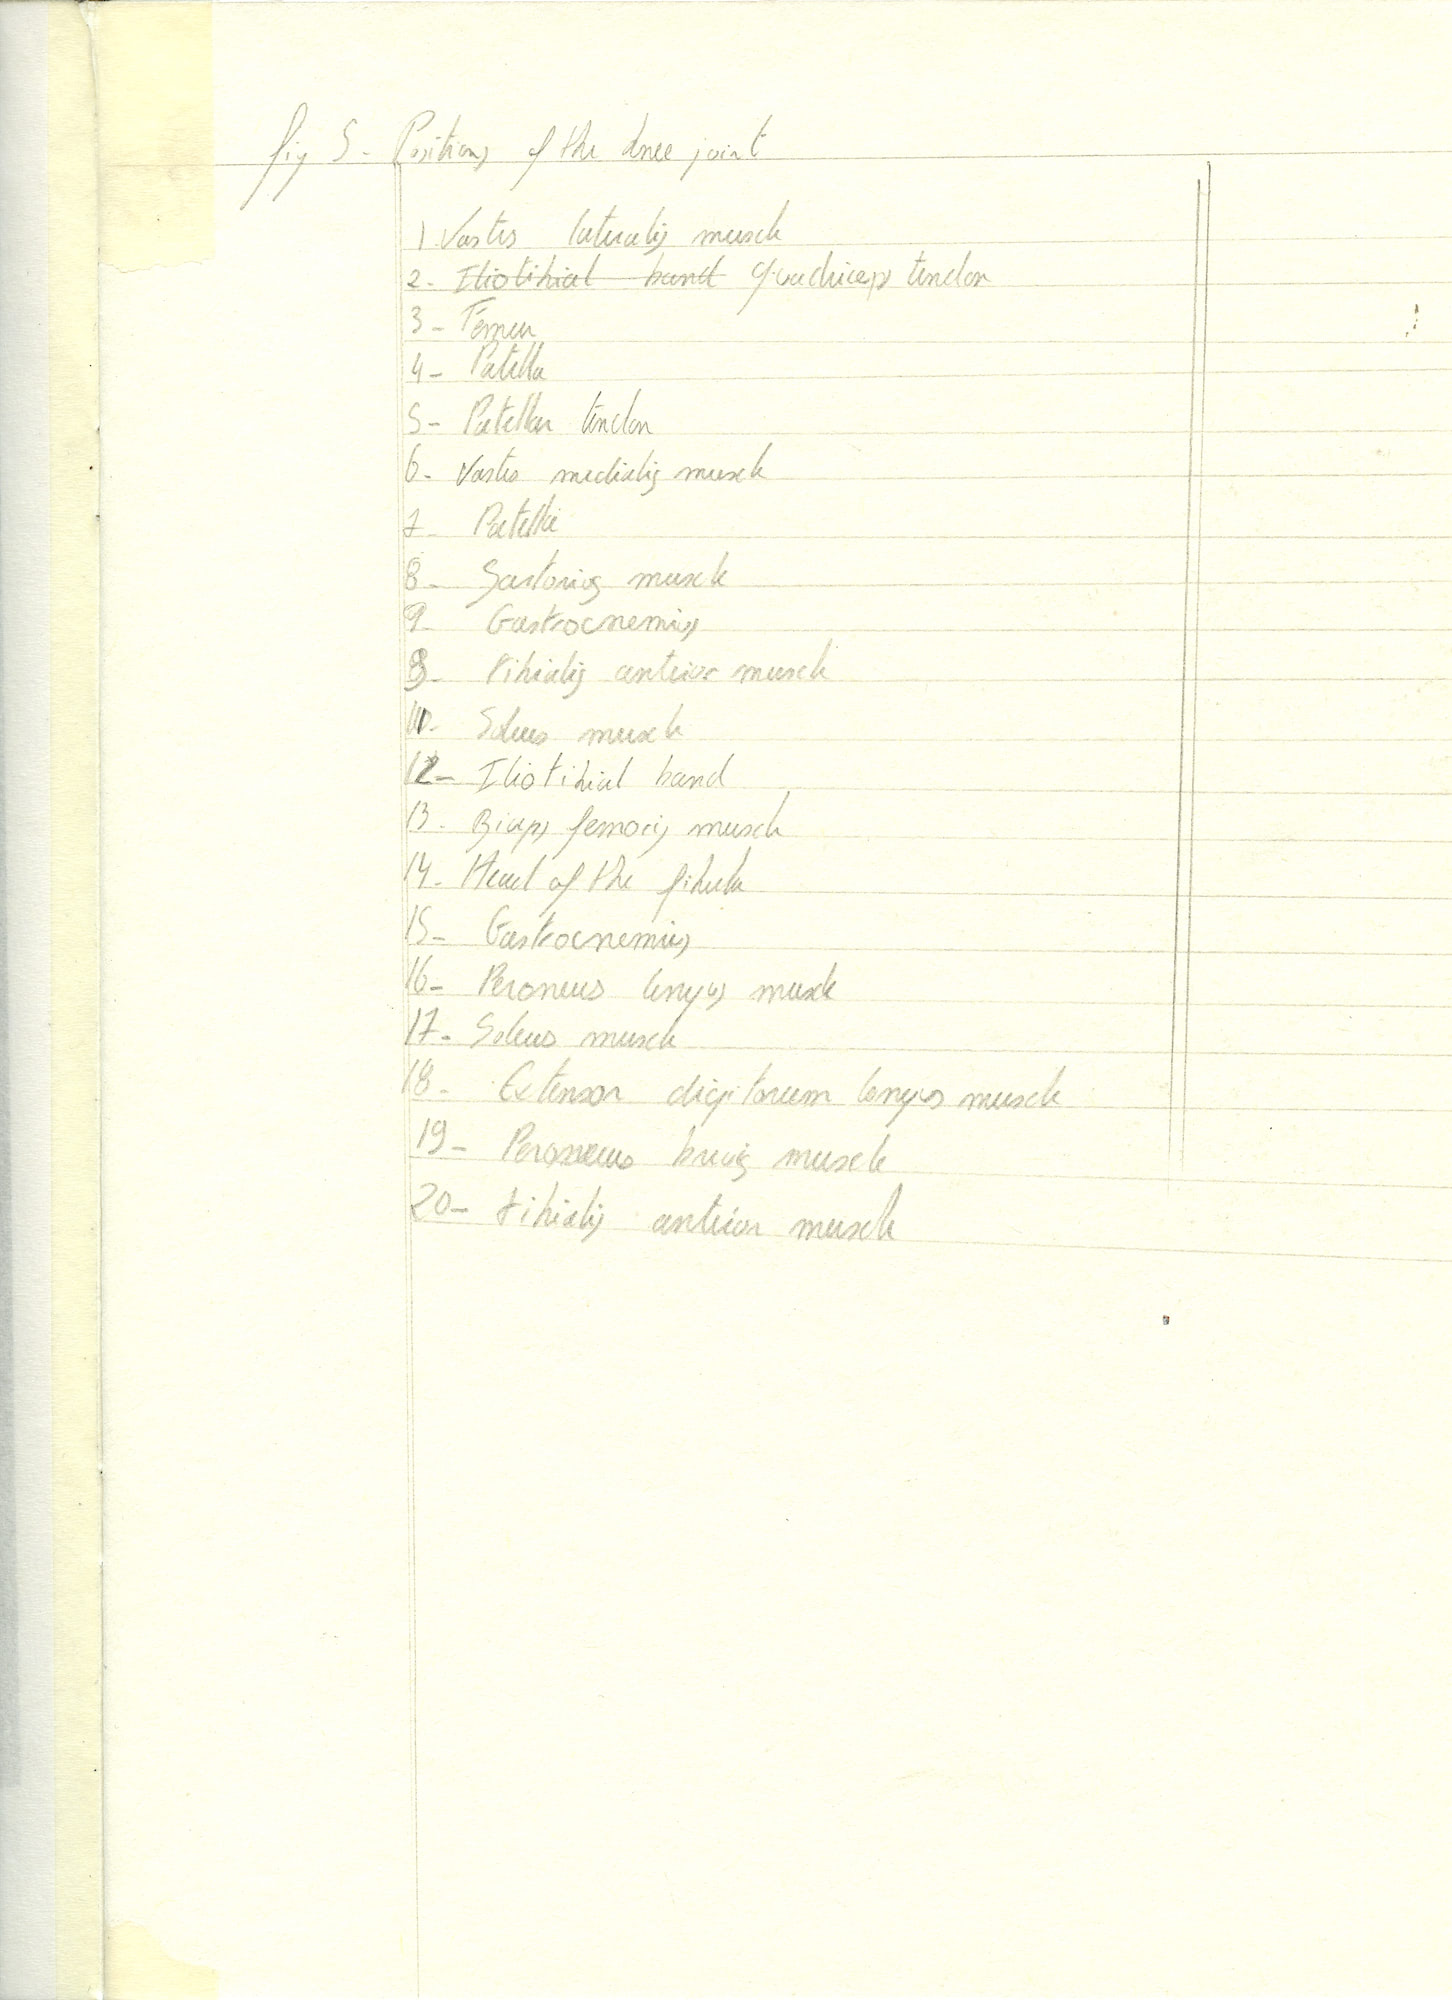 fig 5 - Positions of the knee joint
1 Vastus lateralis muscle
2- Iliotibial band Quadriceps tendon
3- Femur
4- Patella
5- Patellar tendon
6- Vastus medialis muscle
7- Patella
8- Sartorius muscle
9- Gastrocnemius
9- Tibialis anterior muscle
11- Soleus muscle
12- Iliotibial band
13- Biceps femoris muscle
14- Head of the fibula
15- Gastrocnemius
16- Peroneus longus muscle
17- Soleus muscle
18- Extensor digitorum longus muscle
19- Peroneus brevis muscle
20- tibialis anterior muscle